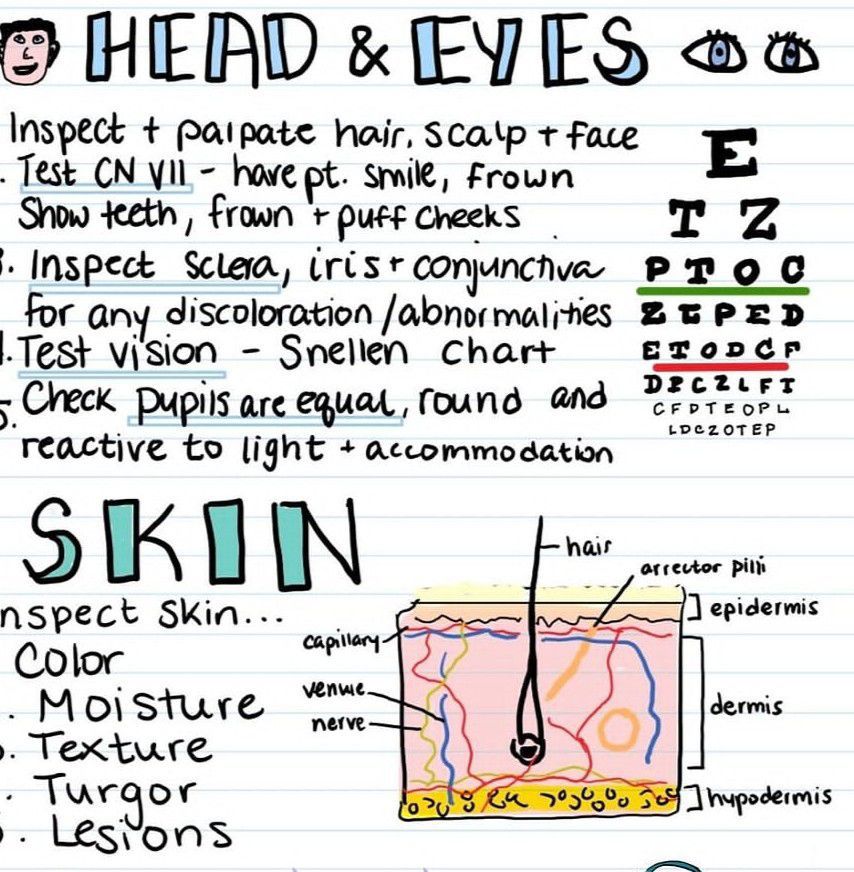 HEAD & EYES
Inspect + palpate hair, scalp + face
. Test CN VII - have pt. smile, frown
Show teeth, frown + puff cheeks
3. Inspect sclera, iris + conjunctiva
for any discoloration/abnormalities
. Test vision - Snellen chart
5. Check pupils are equal, round and
reactive to light + accommodation
E
T Z
P T O C
Z L P E D
E T O D C F
D P C Z L F T
C F D T E O P L
L D C Z O T E P
SKIN
nspect skin...
Color
. Moisture
. Texture
. Turgor
. Lesions
hair
arrector pili
epidermis
capillary
venule
nerve
dermis
hypodermis